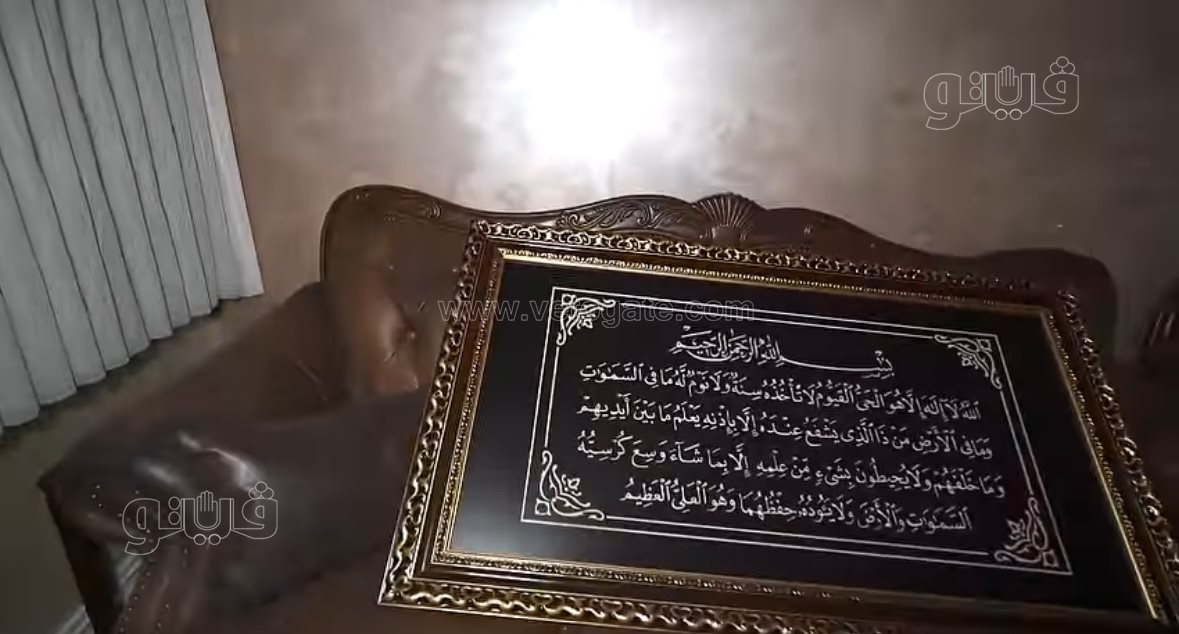 ڤيتانو
www.vetogate.com
بِسْمِ اللَّهِ الرَّحْمَٰنِ الرَّحِيمِ
اَللَّهُ لَآ اِلَهَ اِلَّا هُوَ الْحَيُّ الْقَيُّومُ لَا تَأْخُذُهُ سِنَةٌ وَلَا نَوْمٌ لَهُ مَا فِى السَّمٰوَتِ
وَمَا فِى الْأَرْضِ مَنْ ذَا الَّذِى يَشْفَعُ عِنْدَهُ إِلَّا بِإِذْنِهِ يَعْلَمُ مَا بَيْنَ أَيْدِيهِمْ
وَمَا خَلْفَهُمْ وَلَا يُحِيطُونَ بِشَىْءٍ مِّنْ عِلْمِهِ إِلَّا بِمَا شَآءَ وَسِعَ كُرْسِيُّهُ
السَّمٰوَتِ وَالْأَرْضَ وَلَا يَئُودُهُ حِفْظُهُمَا وَهُوَ الْعَلِىُّ الْعَظِيمُ
ڤيتانو